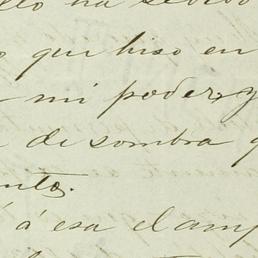 ha
que hiso en
mi poder, y
de sombra
á esa el amp